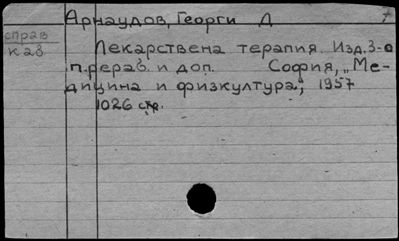 Арнаудов, Георги Д 7
справ
каб
Лекарствена терапия. Изд. 3-о
прераб. и доп. София, „Ме-
дицина и физкултура", 1957
1026 стр.